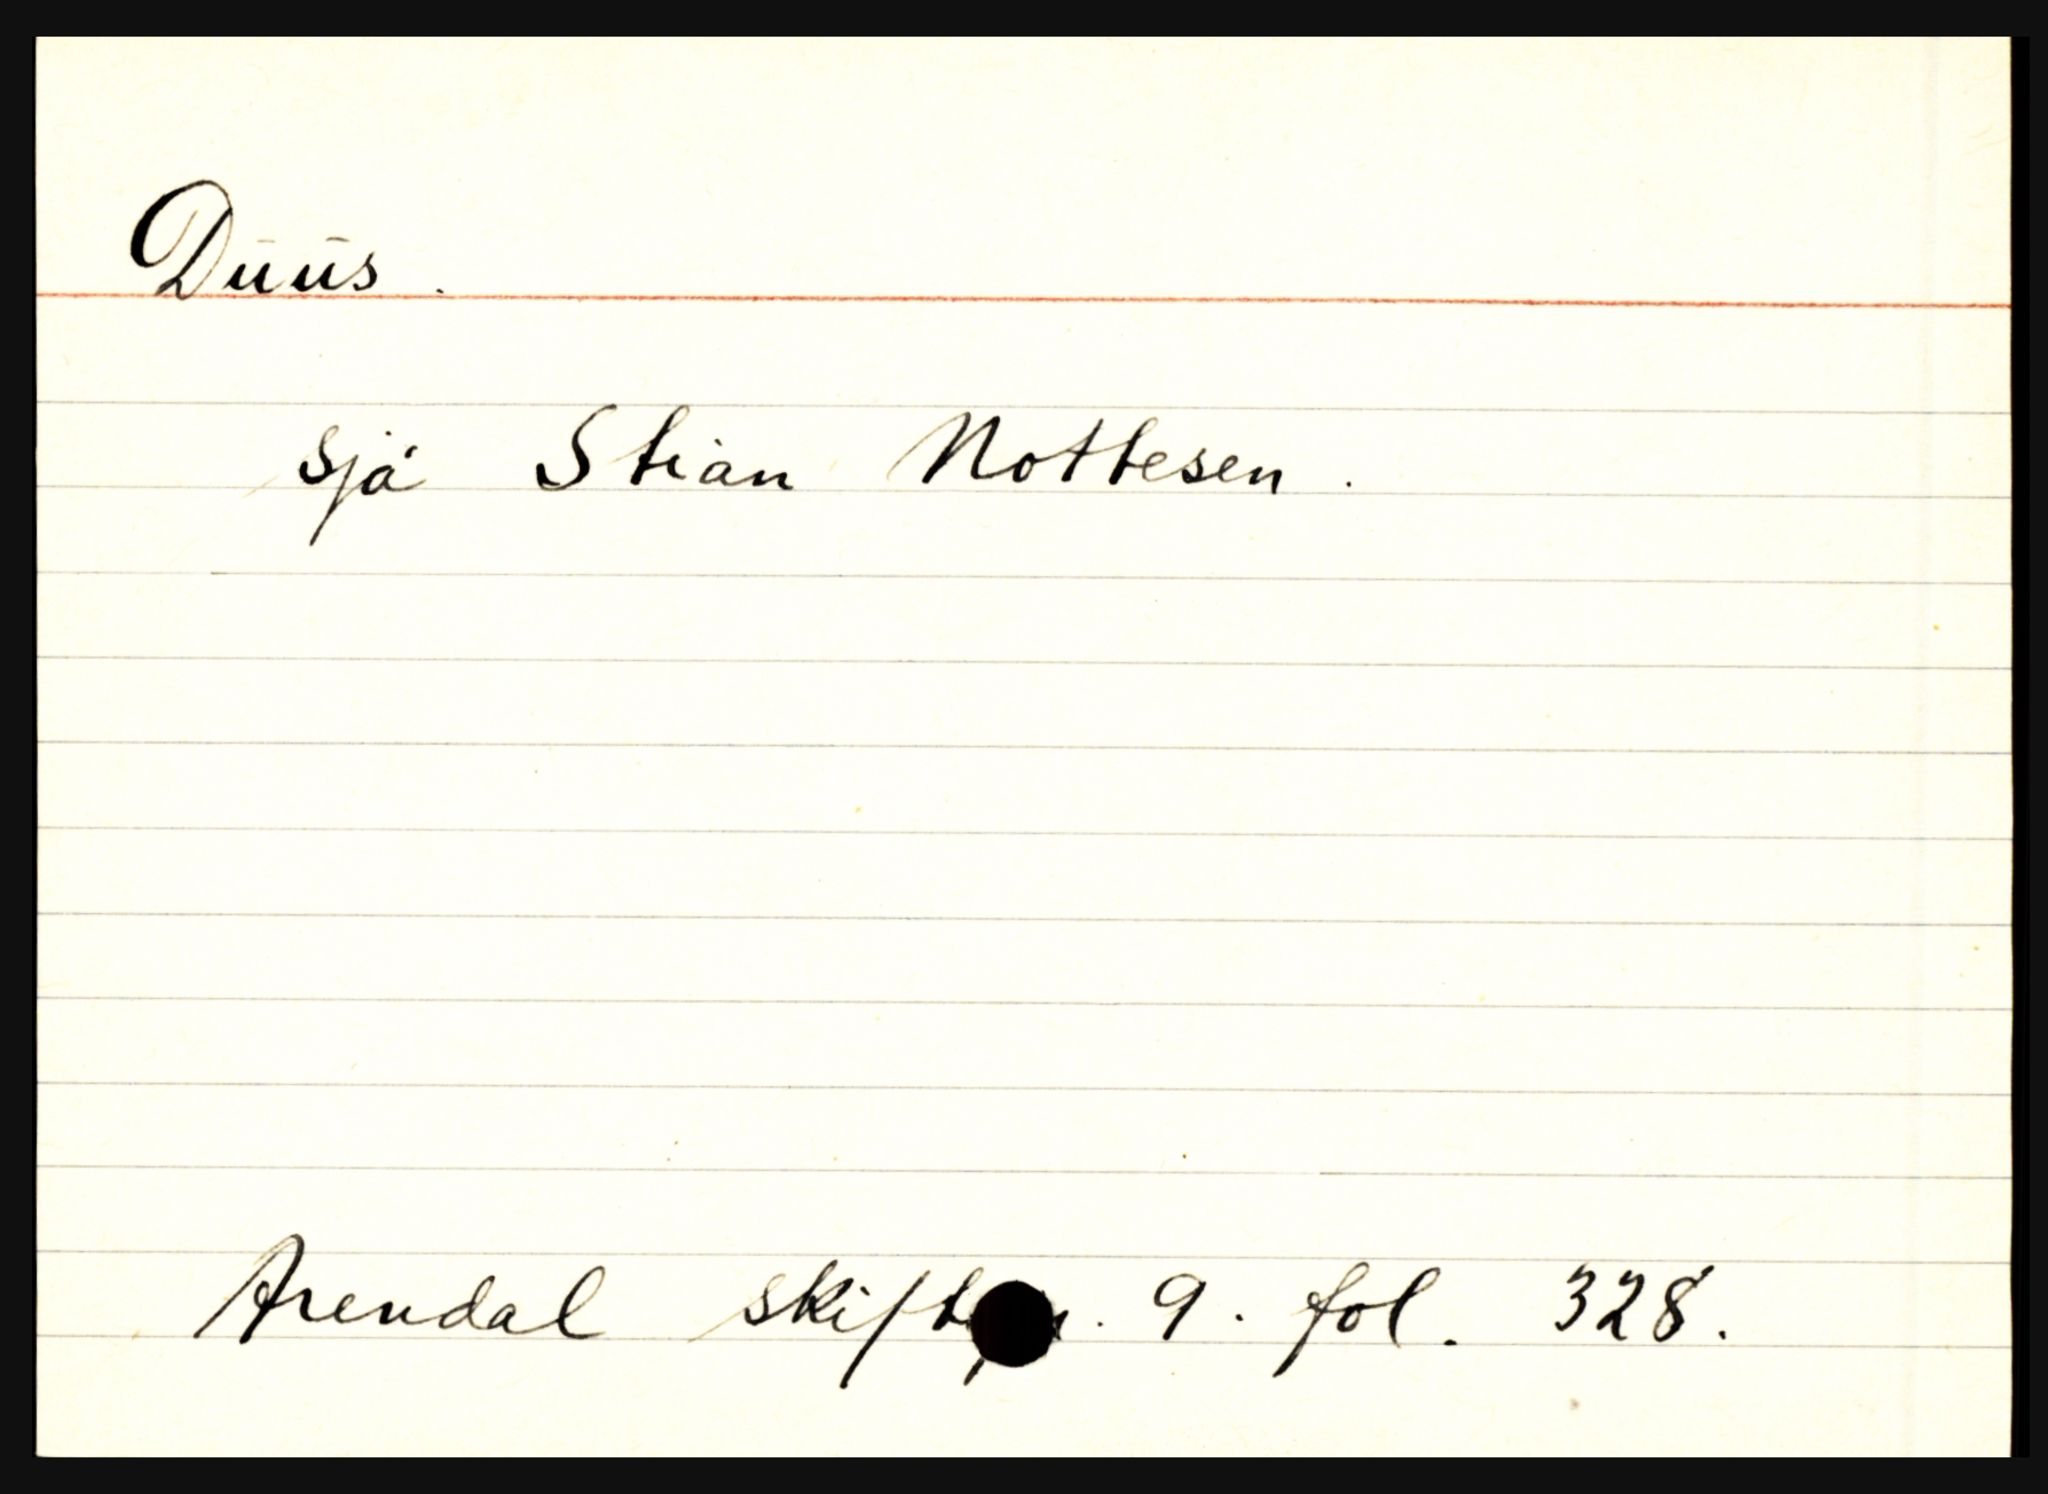 Duus.
sjå Stian Nottesen.
Arendal 9. fol. 328.